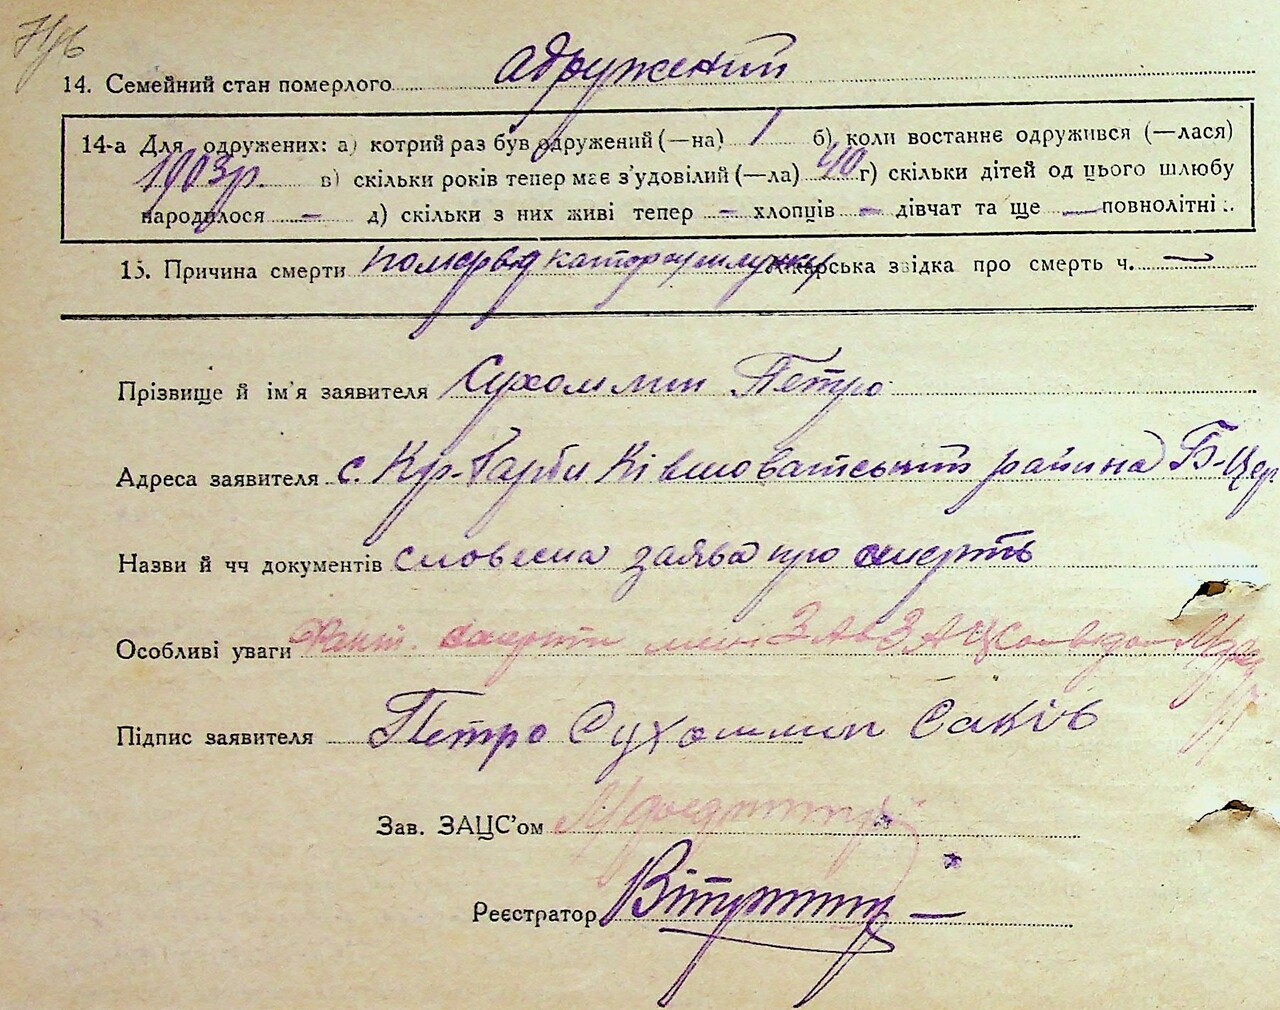 14. Семейний стан померлого одружений
14-а Для одружених: а) котрий раз був одружений (—на) 1 б) коли востаннє одружився (—лася)
1903р. в) скільки років тепер має з'удовілий (—ла) 40 г) скільки дітей од цього шлюбу
народилося — д) скільки з них живі тепер — хлопців — дівчат та ще — повнолітні
15. Причина смерти помер від лікарська звідка про смерть ч. —
Прізвище й ім'я заявителя Сухомлин Петро
Адреса заявителя с. Кр-Гарби Ківшоватський района Б-Цер
Назви й чч документів словесна заява про смерть
Особливі уваги смерти
Підпис заявителя Петро Сухомлин Саків
Зав. ЗАЦС'ом
Реєстратор